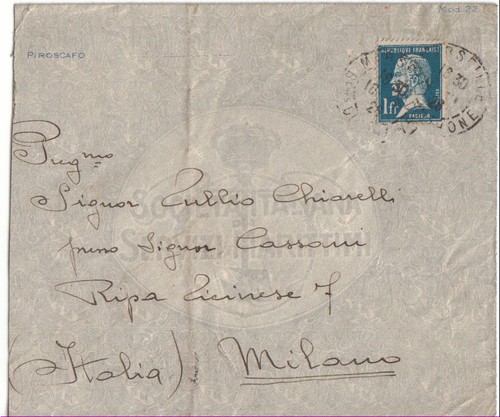 Mod. 22
PIROSCAFO
RÉPUBLIQUE FRANÇAISE
1fr
PASTEUR
Pregmo
Signor Tullio Chiarelli
presso Signor Cassoni
SOCIETÀ ITALIANA
SERVIZI MARITTIMI
Ripa Ticinese 7
(Italia) Milano